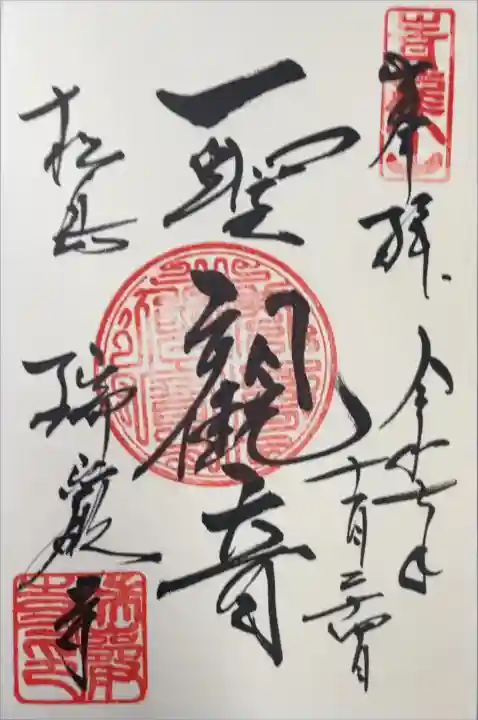 奉拝 令和七年
十一月二十四日
聖観音
松島 瑞巌寺